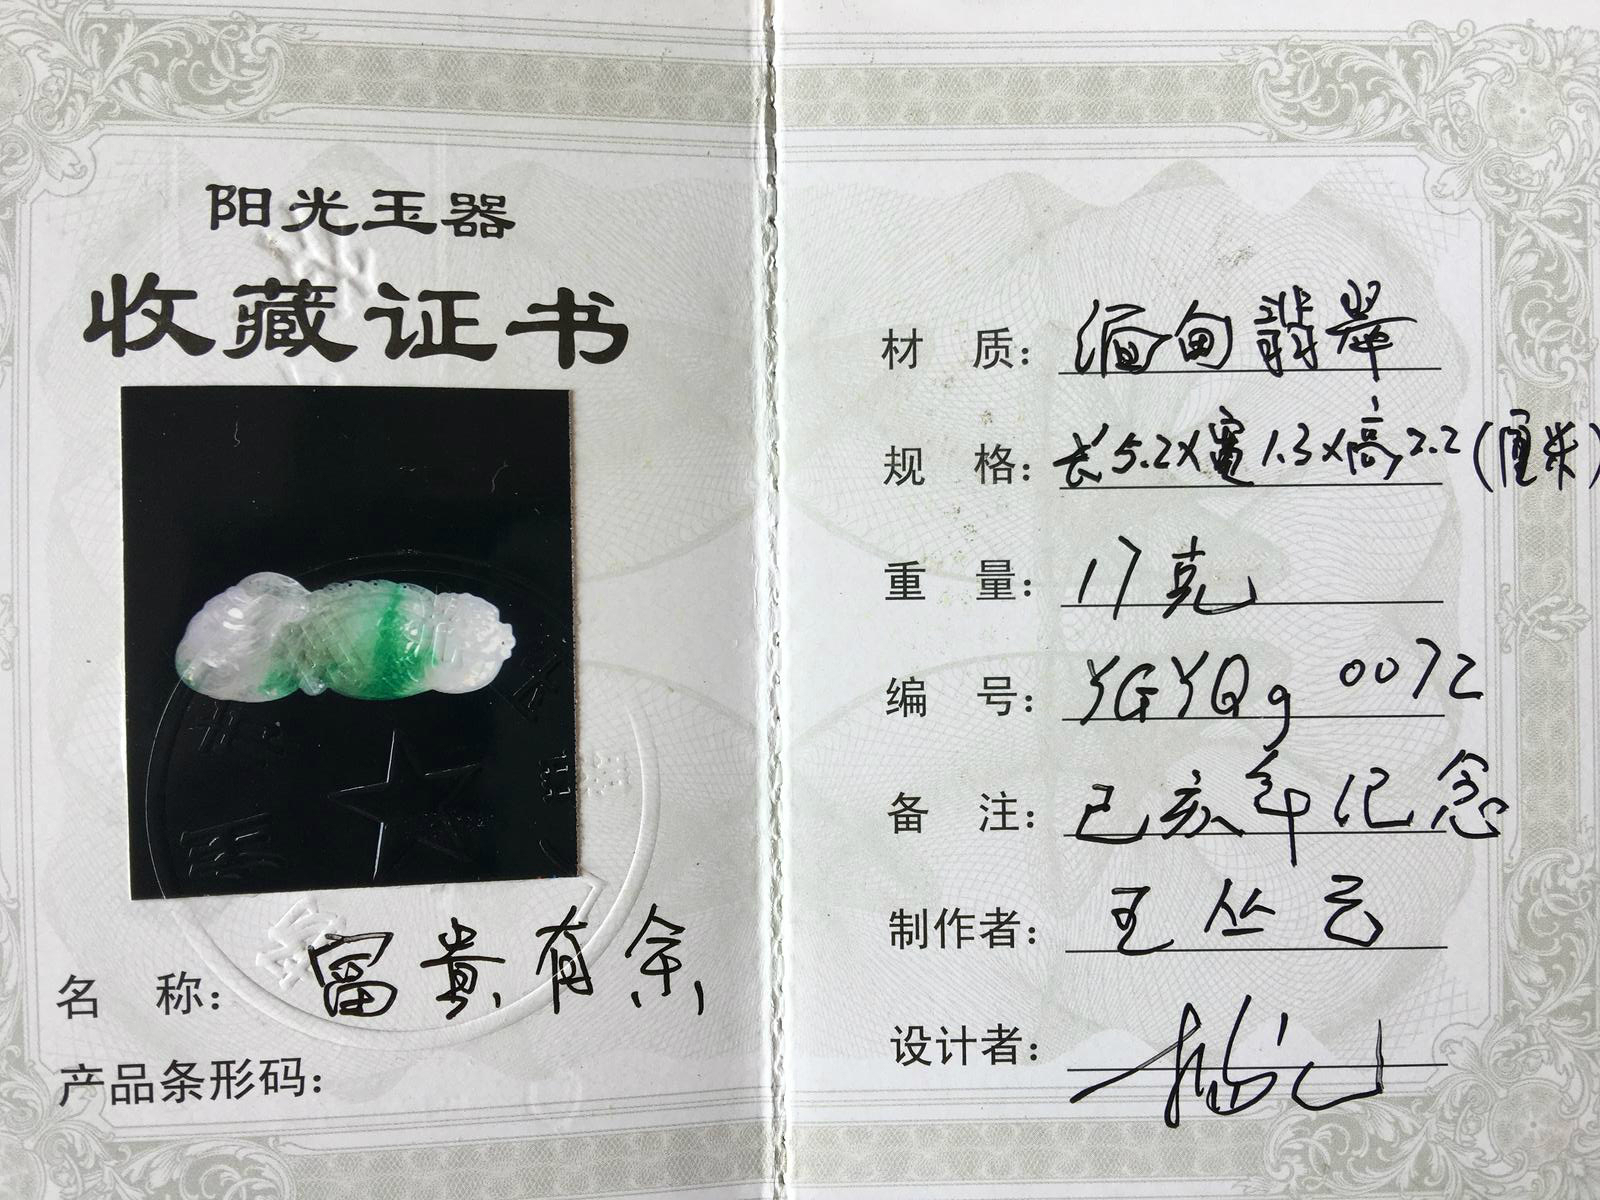 阳光玉器
收藏证书
名 称：富貴有余
产品条形码：
材 质：缅甸翡翠
规 格：长5.2×宽1.3×高2.2(厘米)
重 量：17克
编 号：YGYQg 0072
备 注：己亥年纪念
制作者：王丛云
设计者：